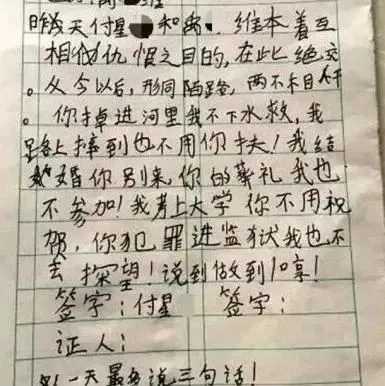 昨天付星 和高 维本着互
相仇恨之目的,在此绝交
。从今以后,形同陌路,两不相干
。你掉进河里我不下水救,我
路上摔到也不用你扶!我结
婚你别来,你的葬礼我也
不参加!我考上大学你不用祝
贺,你犯罪进监狱我也不
去探望!说到做到!
签字:付星 签字:
证人:
一天最多说三句话!